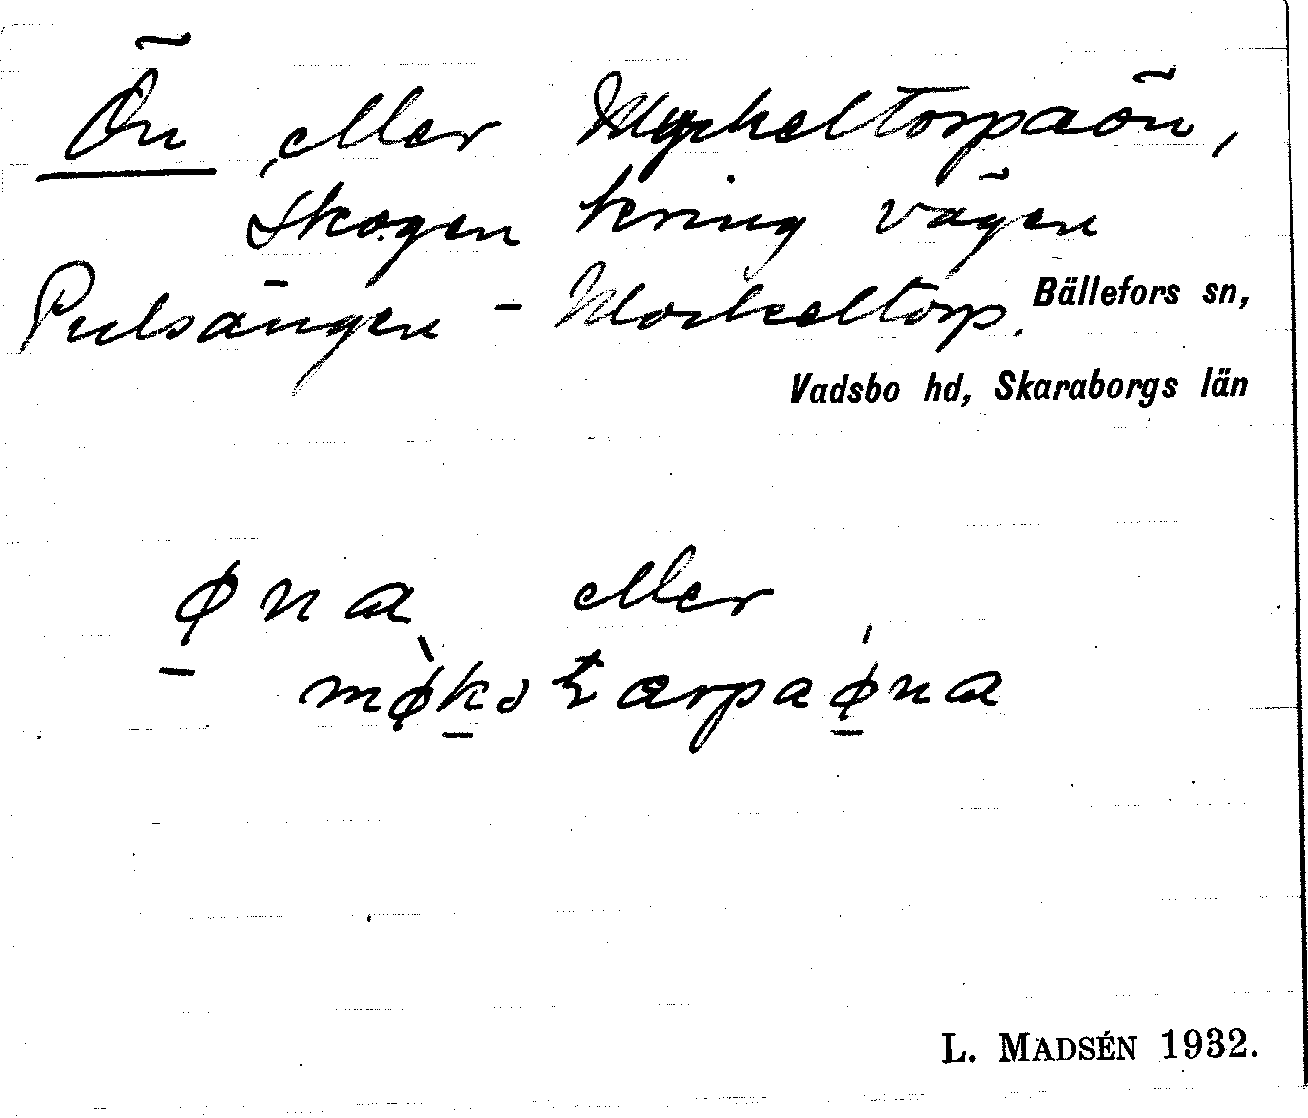 Ön eller Myckeltorpaön,
Skogen kring vägen
Pulsängen - Morkeltorp.
Bällefors sn,
Vadsbo hd, Skaraborgs län
øna eller
L. MADSÉN 1932.